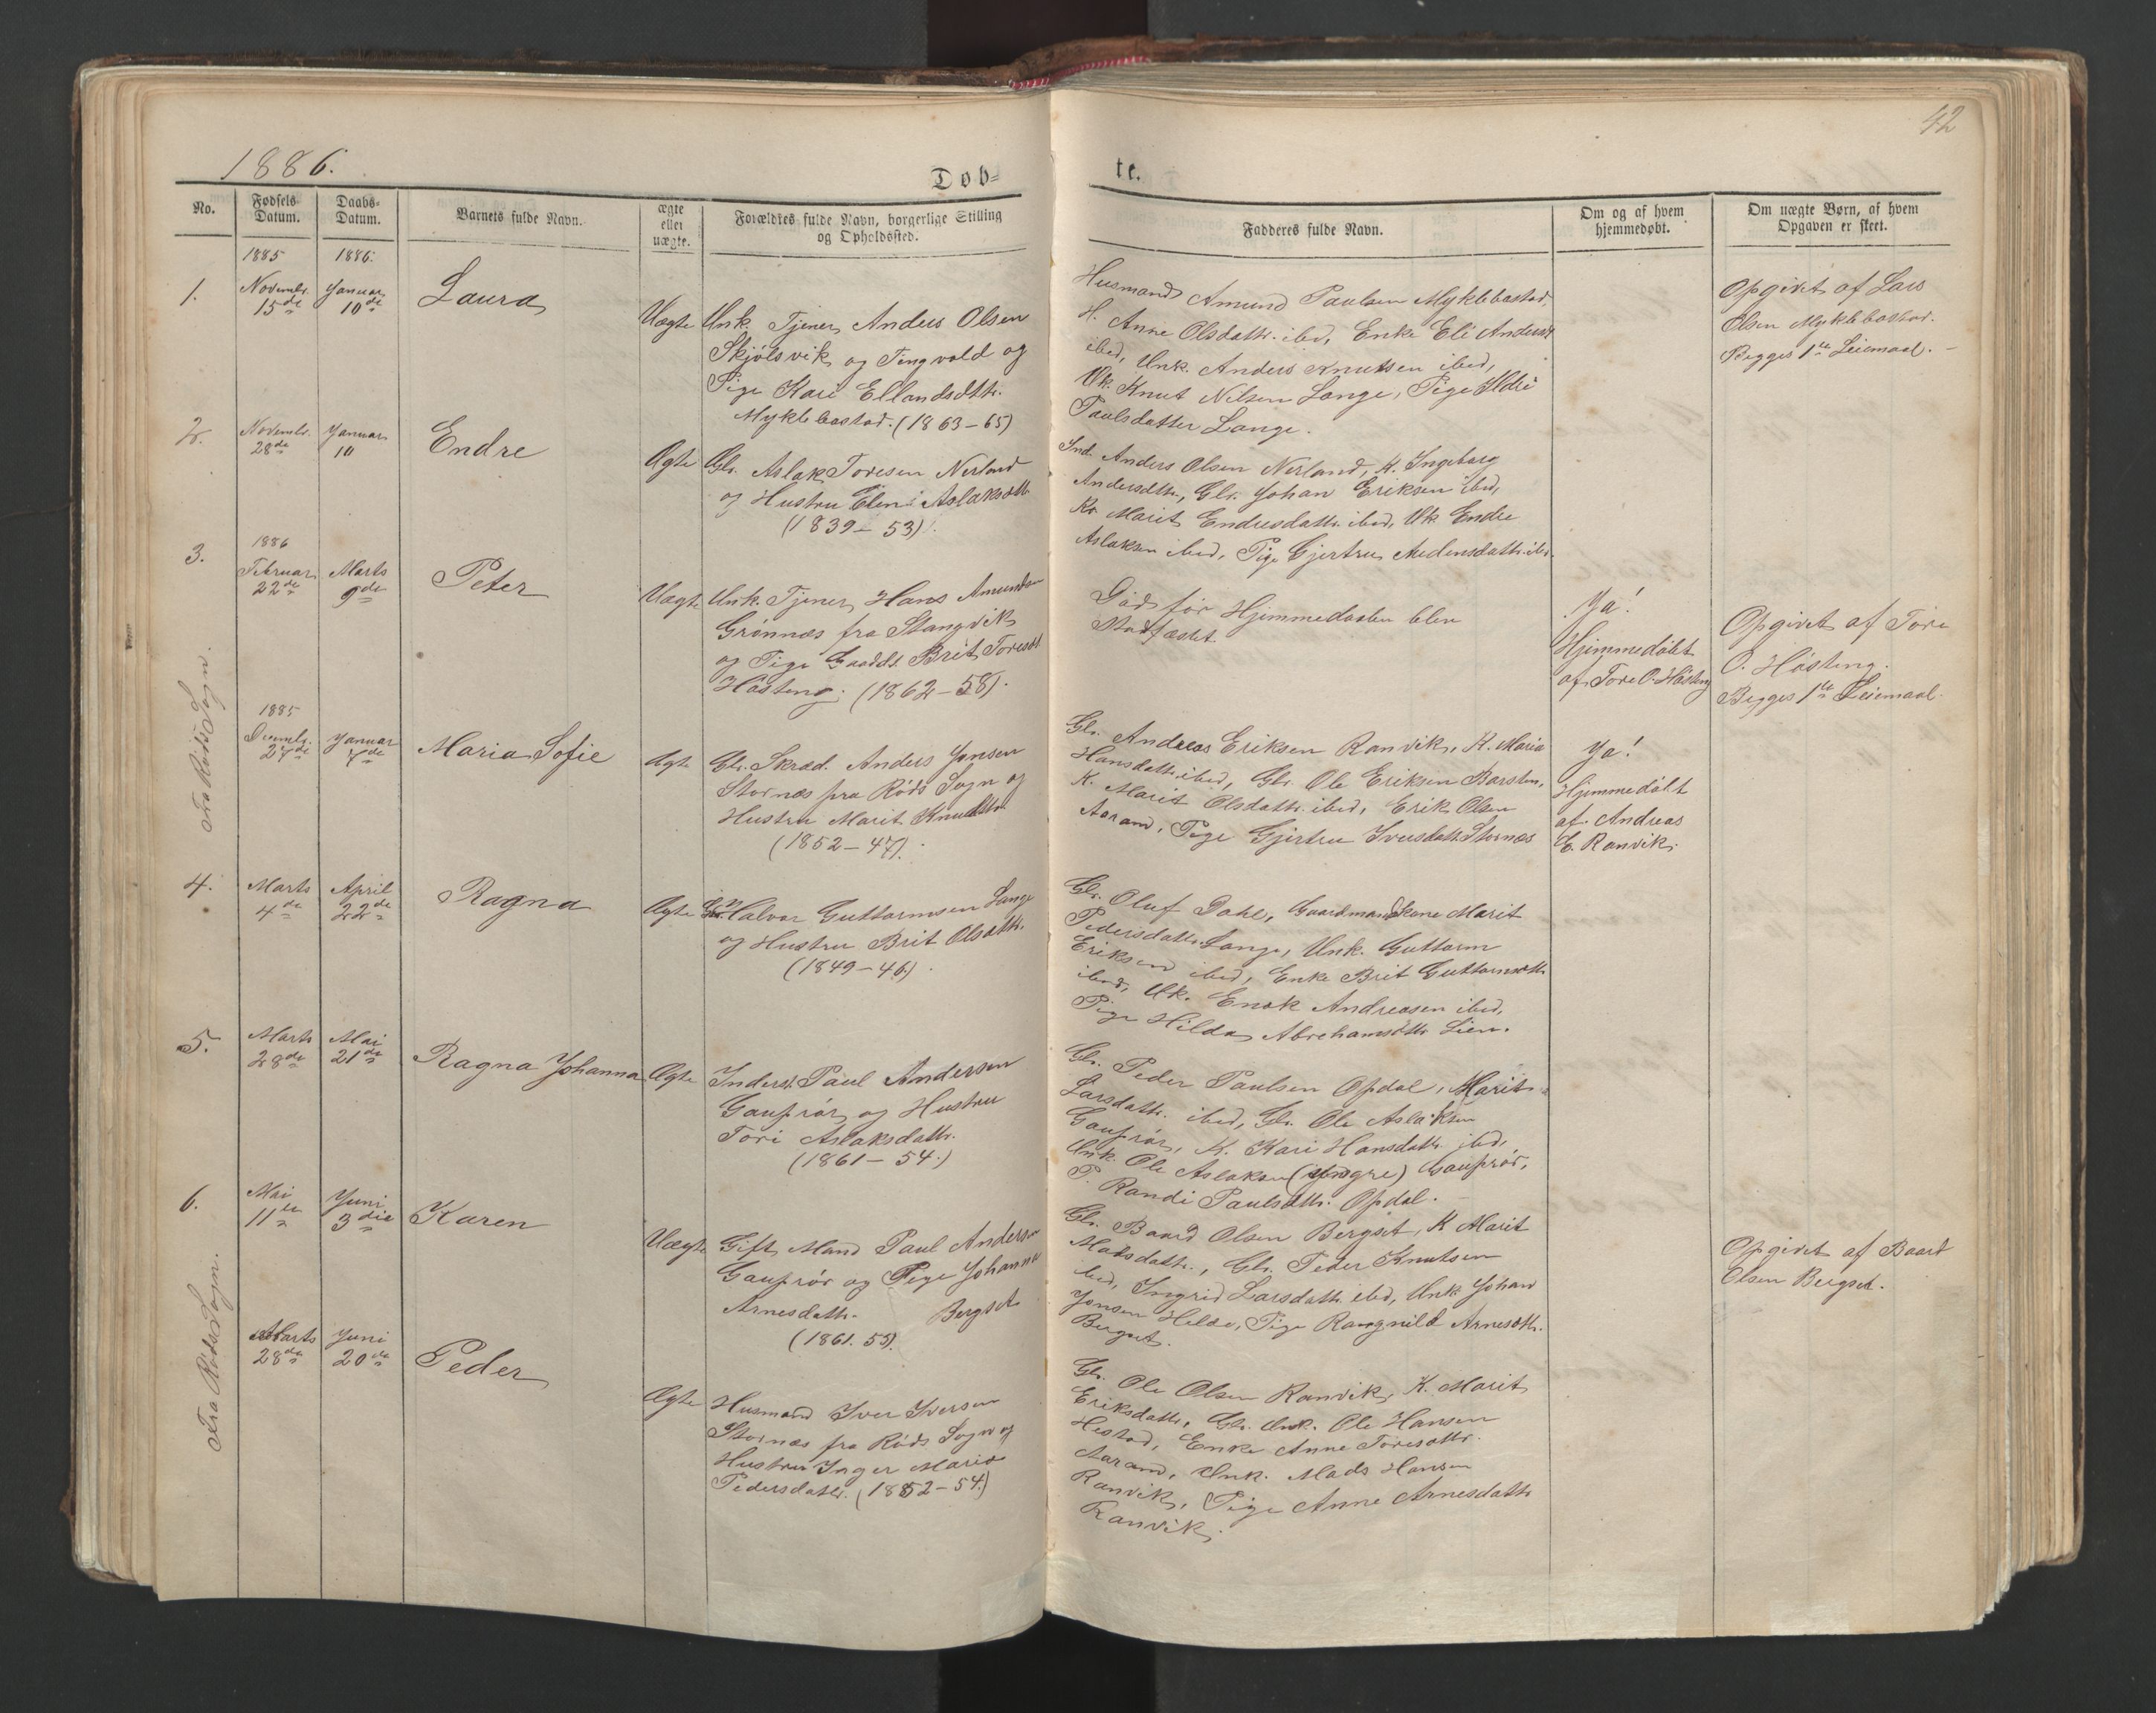 42
1886.
Döb-
te.
No.
Fødsels-
Datum.
Daabs-
Datum.
Barnets fulde Navn.
ægte
eller
uægte.
Forældres fulde Navn, borgerlige Stilling
og Opholdssted.
Fadderes fulde Navn.
Om og af hvem
hjemmedøbt.
Om uægte Børn, af hvem
Opgaven er skeet.
1885
1886.
1.
Novembr.
15de
Januar
10de
Laura
Uægte
Unk. Tjener Anders Olsen
Skjölsvik og Tingvold og
Pige Kari Ellandsdttr.
Myklebostad. (1863-65)
Husmand Amund Paulsen Myklebostad,
H. Anne Olsdattr. ibed, Enke Eli Andersd
ibed, Unk. Anders Knutsen ibed,
Uk. Knut Nilsen Lange, Pige Ildri
Paulsdatter Lange.
Opgivet af Lars
Olsen Myklebostad.
Begges 1te Leiemaal.
2.
Novembr.
28de
Januar
10
Endre
Ægte
Gbr. Aslak Toresen Nerland
og Hustru Eleni Aslaksdttr
(1839-53).
Ind. Anders Olsen Nerland, K. Ingeborg
Andersdttr, Gbr. Johan Eriksen ibed,
K. Marit Endresdattr. ibed, Uk. Endre
Aslaksen ibed, Pige Gjertru Audensdattr. ibd.
3.
1886
Februar
22de
Marts
9de
Peter
Uægte
Unk. Tjener Hans Amundsen
Grönnæs fra Stangvik
og Pige Gaardd. Brit Toresdt
Hösteng. (1862-58).
Död för Hjemmedaaben blev
Stadfæstet.
Ja!
Hjemmedöbt
af Tore O. Hösteng
Opgivet af Tore
O. Hösteng.
Begges 1te Leiemaal.
Fra Röds Sogn.
1885
Decembr.
27de
Januar
7de
Maria Sofie
Ægte
Gbr. Skræd. Anders Jonsen
Stornæs fra Röds Sogn og
Hustru Marit Knudsdttr
(1852-47).
Gbr. Andreas Eriksen Ranvik, K. Maria
Hansdattr. ibed, Gbr. Ole Eriksen Barsten,
K. Marit Olsdattr. ibed, Erik Olsen
Aarand, Pige Gjertru Iversdattr. Stornæs
Ja!
Hjemmedöbt
af Andreas
E. Ranvik.
4.
Marts
4de
April
22de
Ragna
Ægte
Halvor Guttormsen Lange
og Hustru Brit Olsdttr.
(1849-46).
Gbr. Oluf Dahl, Gaardmandskone Marit
Pedersdattr. Lange, Unk. Guttorm
Eriksen ibed, Enke Brit Guttormsdttr
ibed, Uk. Enok Andreasen ibed,
Pige Hilda Abrahamsdttr Lien.
5.
Marts
28de
Mai
21de
Ragna Johanna
Ægte
Inderst. Paul Andersen
Gauprör og Hustru
Tori Aslaksdattr.
(1861-54.)
Gbr. Peder Paulsen Opdal, Marit
Larsdattr. ibed, Gbr. Ole Aslaksen
Gauprör, K. Kari Hansdattr ibed,
Unk. Ole Aslaksen (yngre) Gauprör,
P. Randi Paulsdttr. Opdal.
6.
Mai
11te
Juni
3die
Karen
Uægte
Gift Mand Paul Andersen
Gauprör og Pige Johanna
Arnesdattr. Bergset
(1861. 55).
Gbr. Baard Olsen Bergset, K Marit
Madsdattr., Gbr. Peder Knutsen
ibed, Ingrid Larsdattr. ibed, Unk Johan
Jonsen Helde, Pige Rangnild Arnesdttr.
Bergset.
Opgivet af Baard
Olsen Bergset.
Fra Röds Sogn.
Marts
28de
Juni
20de
Peder
Ægte
Husmand Iver Iversen
Stornæs fra Röds Sogn og
Hustru Inger Marie
Pedersdattr. (1852-54.)
Gbr. Ole Olsen Ranvik, K. Marit
Eriksdattr, Unk. Ole Hansen
Hestad, Enke Anne Toresdttr.
Aarand, Unk. Mads Hansen
Ranvik, Pige Anne Arnesdattr
Ranvik.